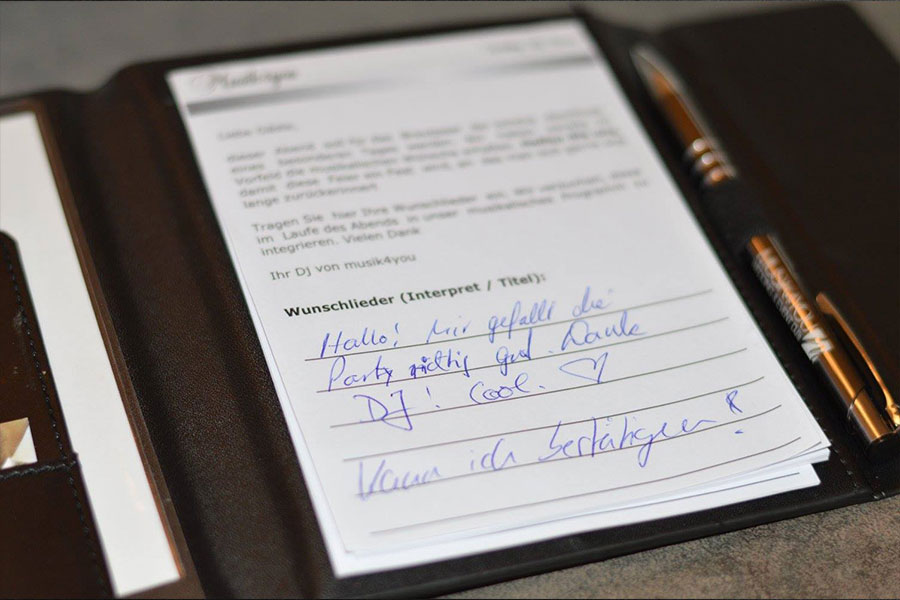 Liebe Gäste,
dieser Abend soll für das Brautpaar
eines besonderen Tages werden. Wir
Vorfeld die musikalischen
damit diese Feier ein Fest wird, an das man sich gerne und
lange zurückerinnert
Tragen Sie hier Ihre Wunschlieder ein. Wir versuchen, diese
im Laufe des Abends in unser musikalisches Programm zu
integrieren. Vielen Dank
Ihr DJ von musik4you
Wunschlieder (Interpret / Titel):
Hallo! Mir gefällt die
Party richtig gut. Danke
DJ! Cool. ♡
Kann ich bestätigen!